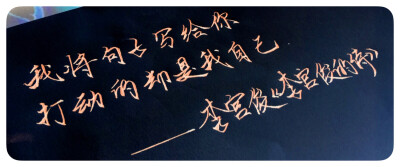 我将句占写给你
打动的却是我自己
——李宫俊《李宫俊的诗》